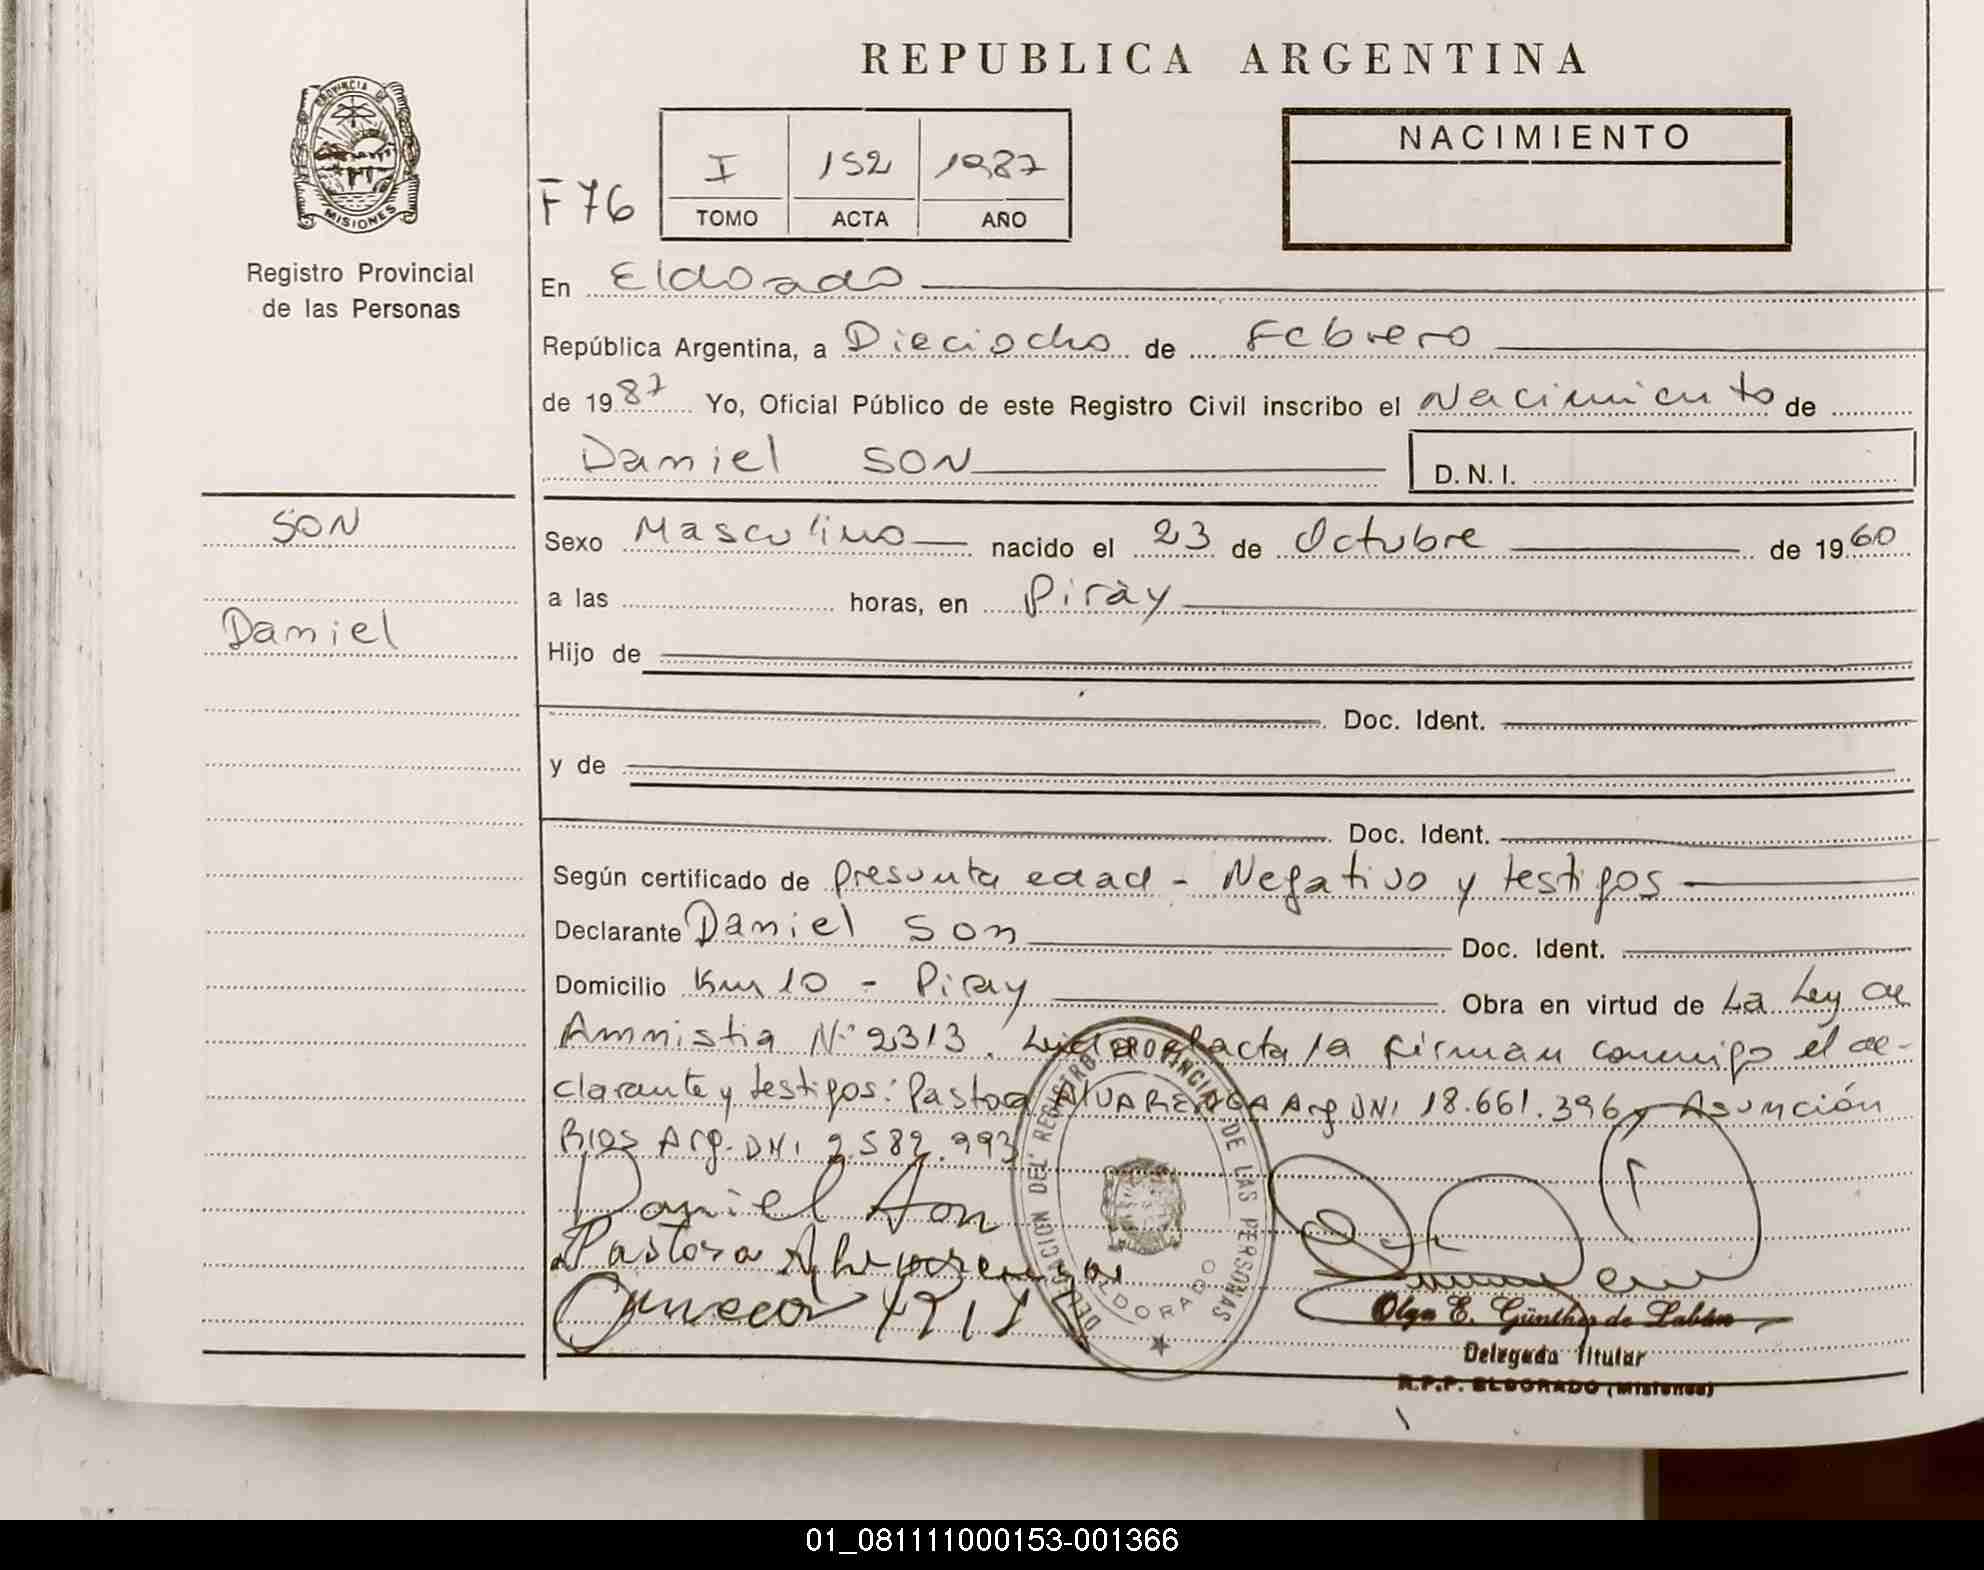 REPUBLICA ARGENTINA
PROVINCIA DE
MISIONES
Registro Provincial
de las Personas
F 76
I 152 1987
TOMO ACTA AÑO
NACIMIENTO
En Eldorado
República Argentina, a Dieciocho de Febrero
de 1987 Yo, Oficial Público de este Registro Civil inscribo el Nacimiento de
Daniel SON D. N. I.
SON
Daniel
Sexo Masculino nacido el 23 de Octubre de 1960
a las horas, en Piray
Hijo de
Doc. Ident.
y de
Doc. Ident.
Según certificado de presunta edad - Negativo y testigos
Declarante Daniel Son Doc. Ident.
Domicilio Km 10 - Piray Obra en virtud de La Ley de
Amnistia Nº 2313. Leida el acta la firman conmigo el de-
clarante y testigos: Pastora ALVARENGA Arg DNI 18.661.396 y Asunción
Rios Arg. DNI 2.582.993
Daniel Son
Pastora
DEL REGISTRO PROVINCIAL DE LAS PERSONAS
ELDORADO
Olga E. Günther de Labán
Delegada Titular
R.P.P. ELDORADO (Misiones)
01_081111000153-001366